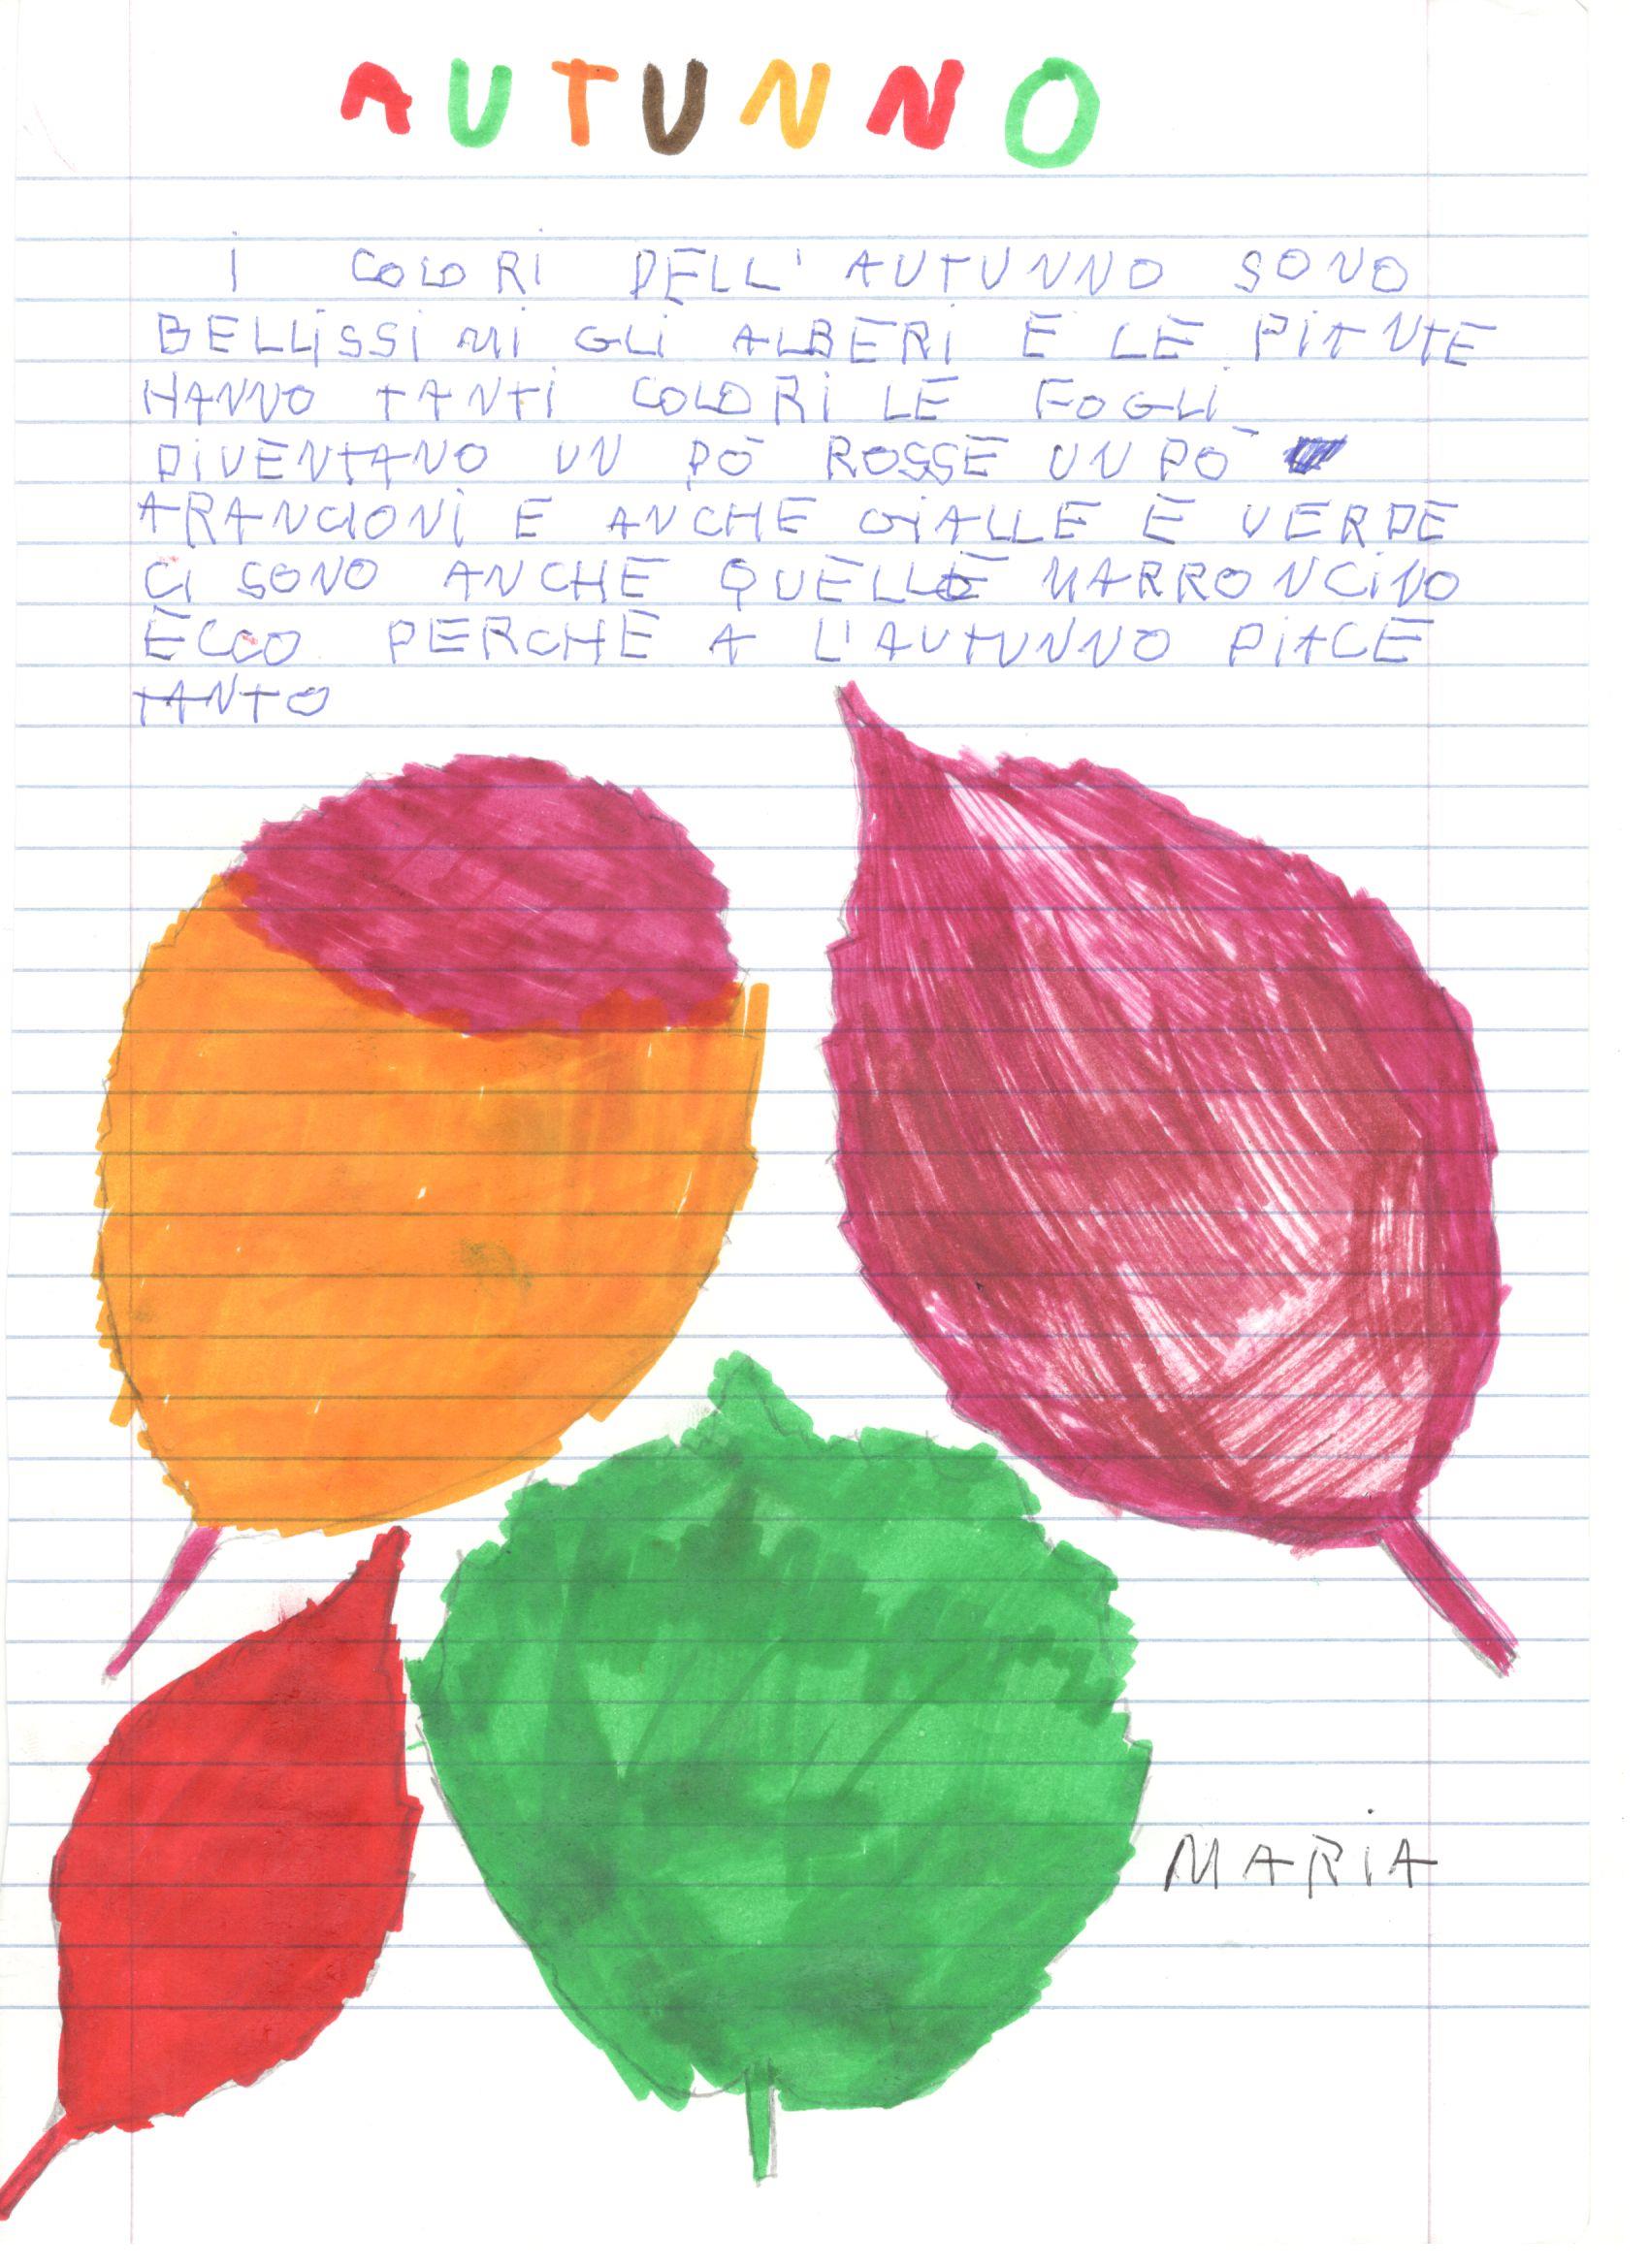 AUTUNNO
I COLORI DELL'AUTUNNO SONO
BELLISSIMI GLI ALBERI E LE PIANTE
HANNO TANTI COLORI LE FOGLI
DIVENTANO UN PÒ ROSSE UN PÒ
ARANCIONI E ANCHE GIALLE E VERDE
CI SONO ANCHE QUELLE MARRONCINO
ECCO PERCHÈ A L'AUTUNNO PIACE
TANTO
MARIA